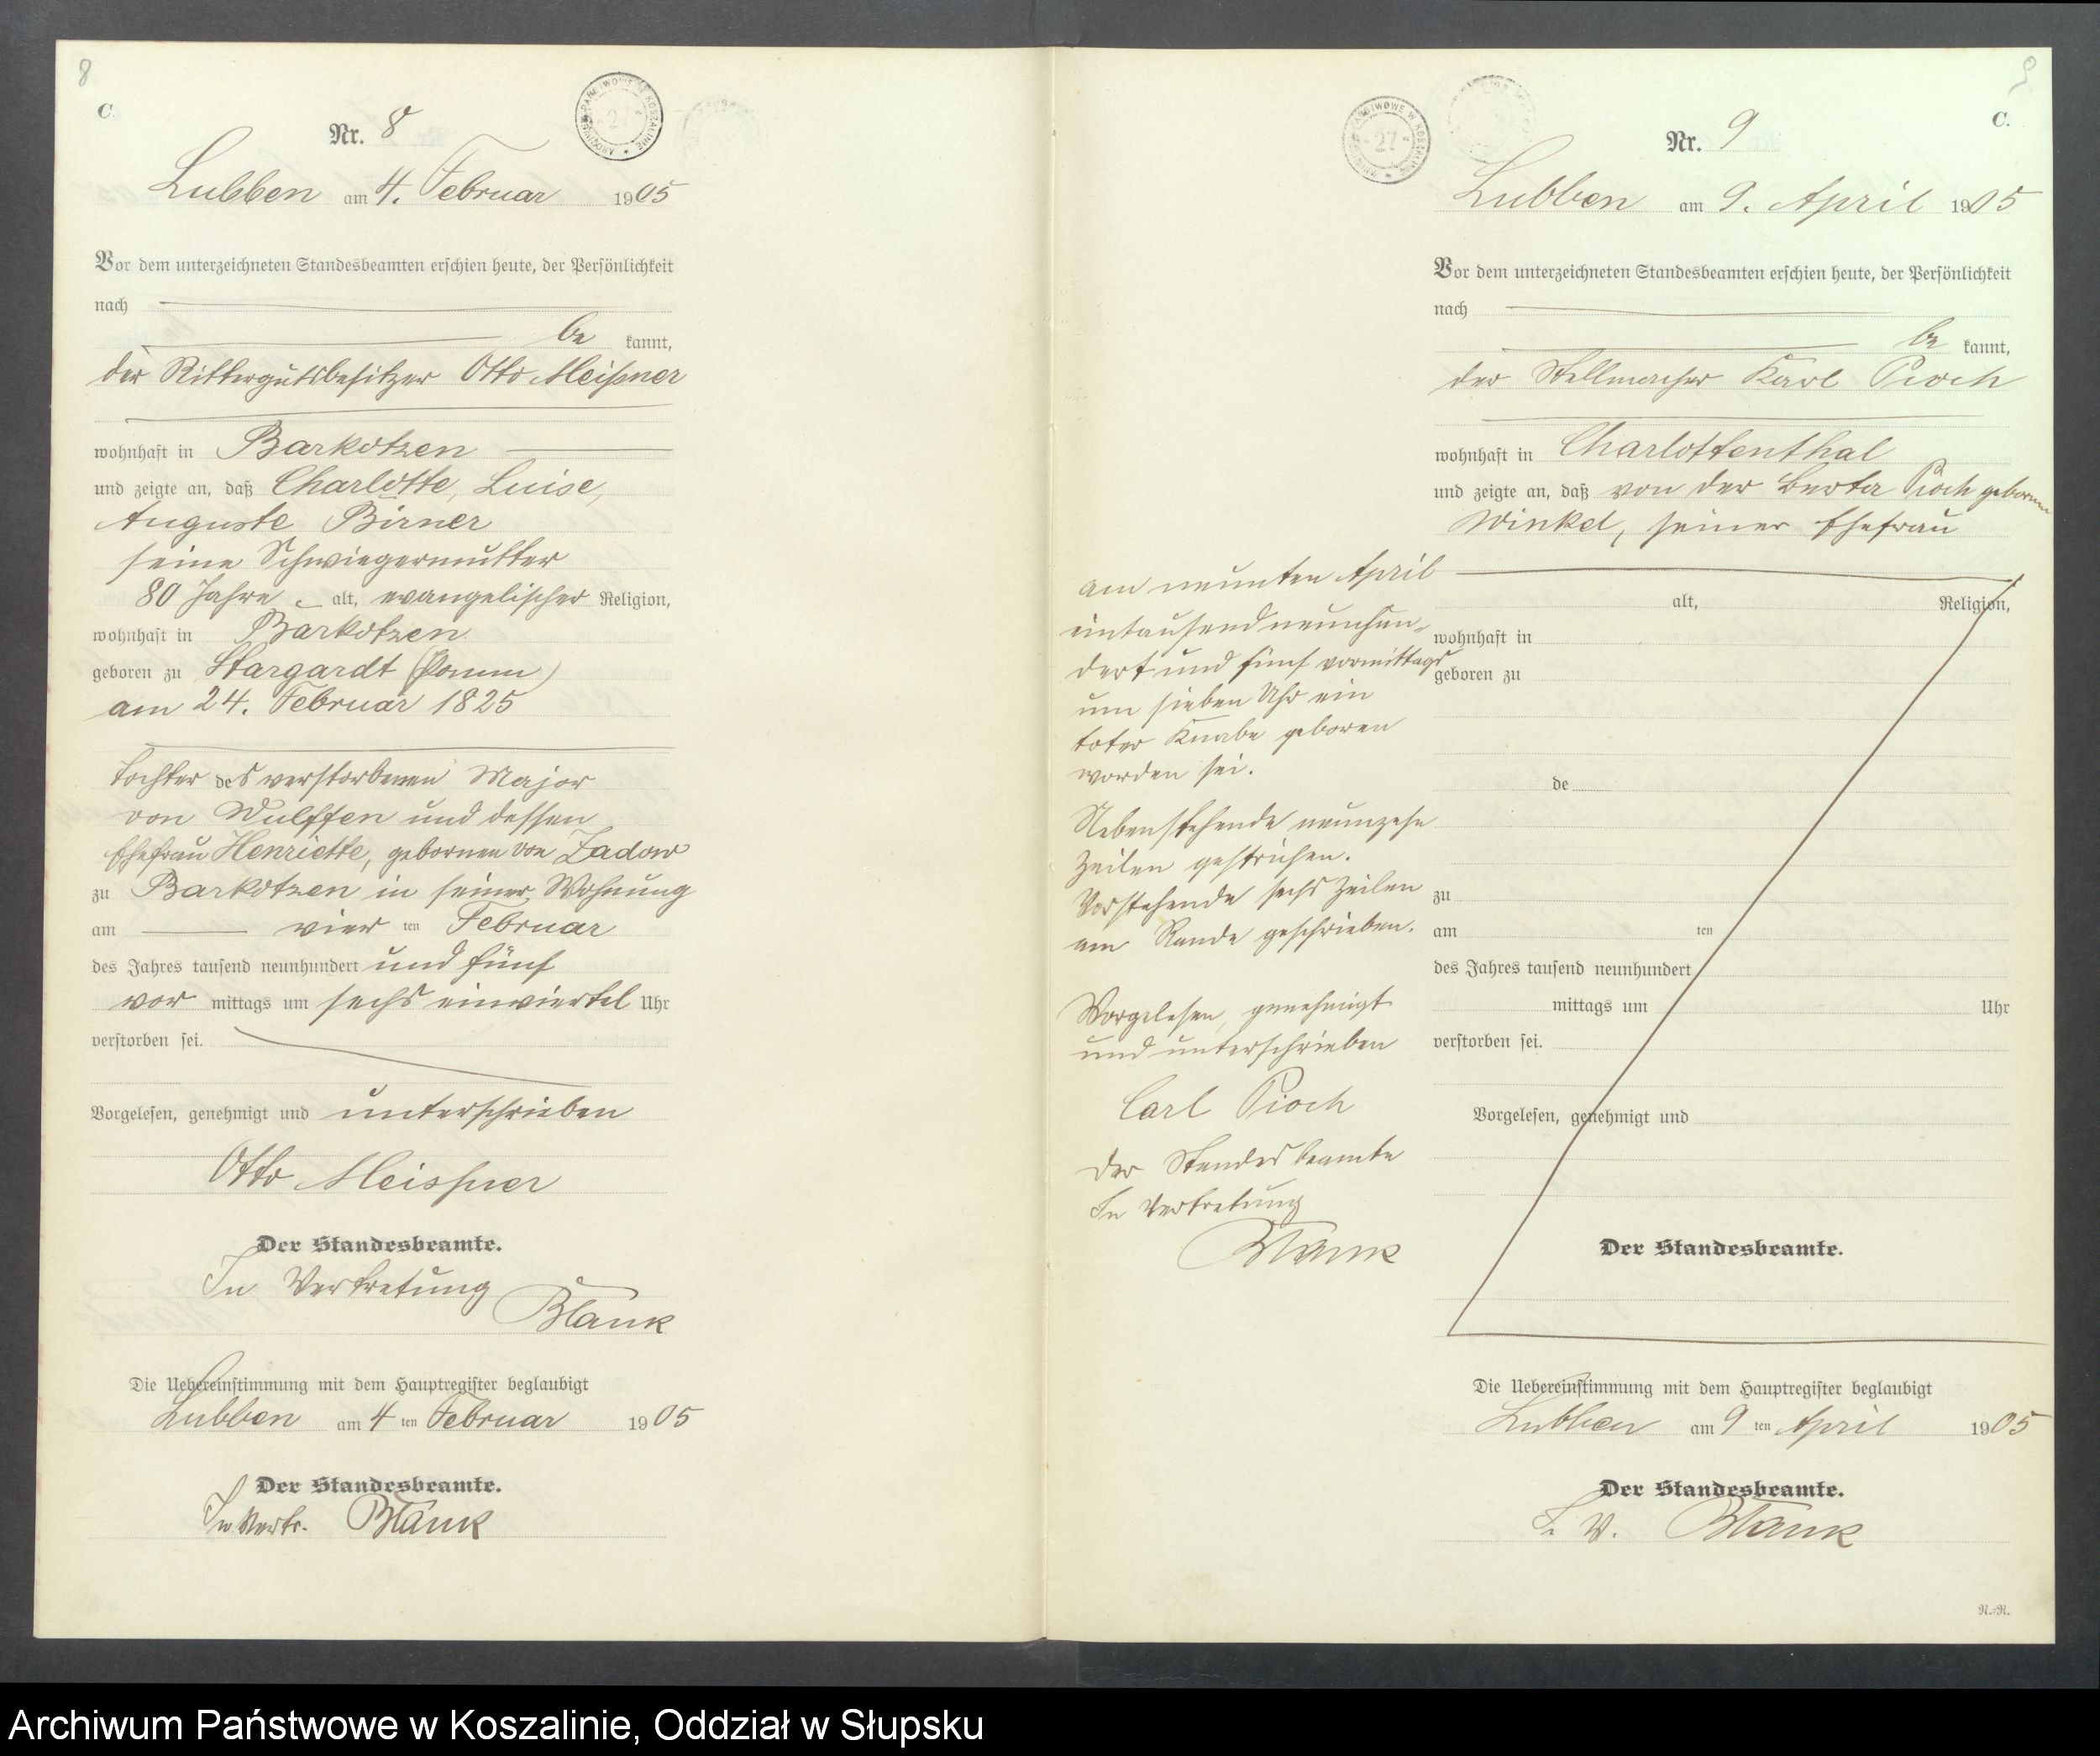 8
C.
Nr. 8
Lubben am 4. Februar 1905
Vor dem unterzeichneten Standesbeamten erschien heute, der Persönlichkeit
nach
be kannt,
der Rittergutsbesitzer Otto Meißner
wohnhaft in Barkotzen
und zeigte an, daß Charlotte, Luise,
Auguste Birner
seine Schwiegermutter
80 Jahre alt, evangelischer Religion,
wohnhaft in Barkotzen
geboren zu Stargardt (Pomm)
am 24. Februar 1825
Tochter des verstorbenen Major
von Wulffen und dessen
Ehefrau Henriette, gebornen von Zadow
zu Barkotzen in seiner Wohnung
am vier ten Februar
des Jahres tausend neunhundert und fünf
vor mittags um sechs einviertel Uhr
verstorben sei.
Vorgelesen, genehmigt und unterschrieben
Otto Meissner
Der Standesbeamte.
In Vertretung
Blank
Die Uebereinstimmung mit dem Hauptregister beglaubigt
Lubben am 4 ten Februar 1905
Der Standesbeamte.
In Vertr. Blank
9
C.
Nr. 9
Lubben am 9. April 1905
Vor dem unterzeichneten Standesbeamten erschien heute, der Persönlichkeit
nach
be kannt,
der Stellmacher Karl Pioch
wohnhaft in Charlottenthal
und zeigte an, daß von der Berta Pioch geborene
Winkel, seiner Ehefrau
am neunten April
eintausendneunhun-
dert und fünf vormittags
um sieben Uhr ein
toter Knabe geboren
worden sei.
Nebenstehende neunzehn
Zeilen gestrichen.
Vorstehende sechs Zeilen
am Rande geschrieben.
Vorgelesen, genehmigt
und unterschrieben
Carl Pioch
Der Standesbeamte
In Vertretung
Blank
alt, Religion,
wohnhaft in
geboren zu
de
zu
am ten
des Jahres tausend neunhundert
mittags um Uhr
verstorben sei.
Vorgelesen, genehmigt und
Der Standesbeamte.
Die Uebereinstimmung mit dem Hauptregister beglaubigt
Lubben am 9 ten April 1905
Der Standesbeamte.
I. V. Blank
N.=N.
Archiwum Państwowe w Koszalinie, Oddział w Słupsku